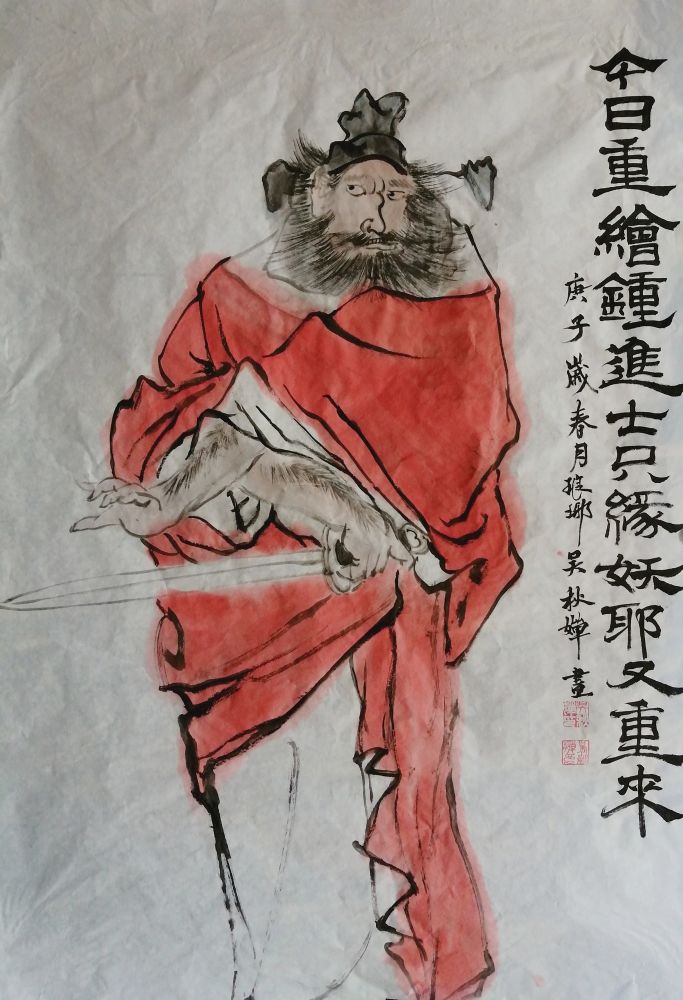 今日重繪鍾進士只緣妖耶又重來
庚子歲春月琅琊吴秋婵畫